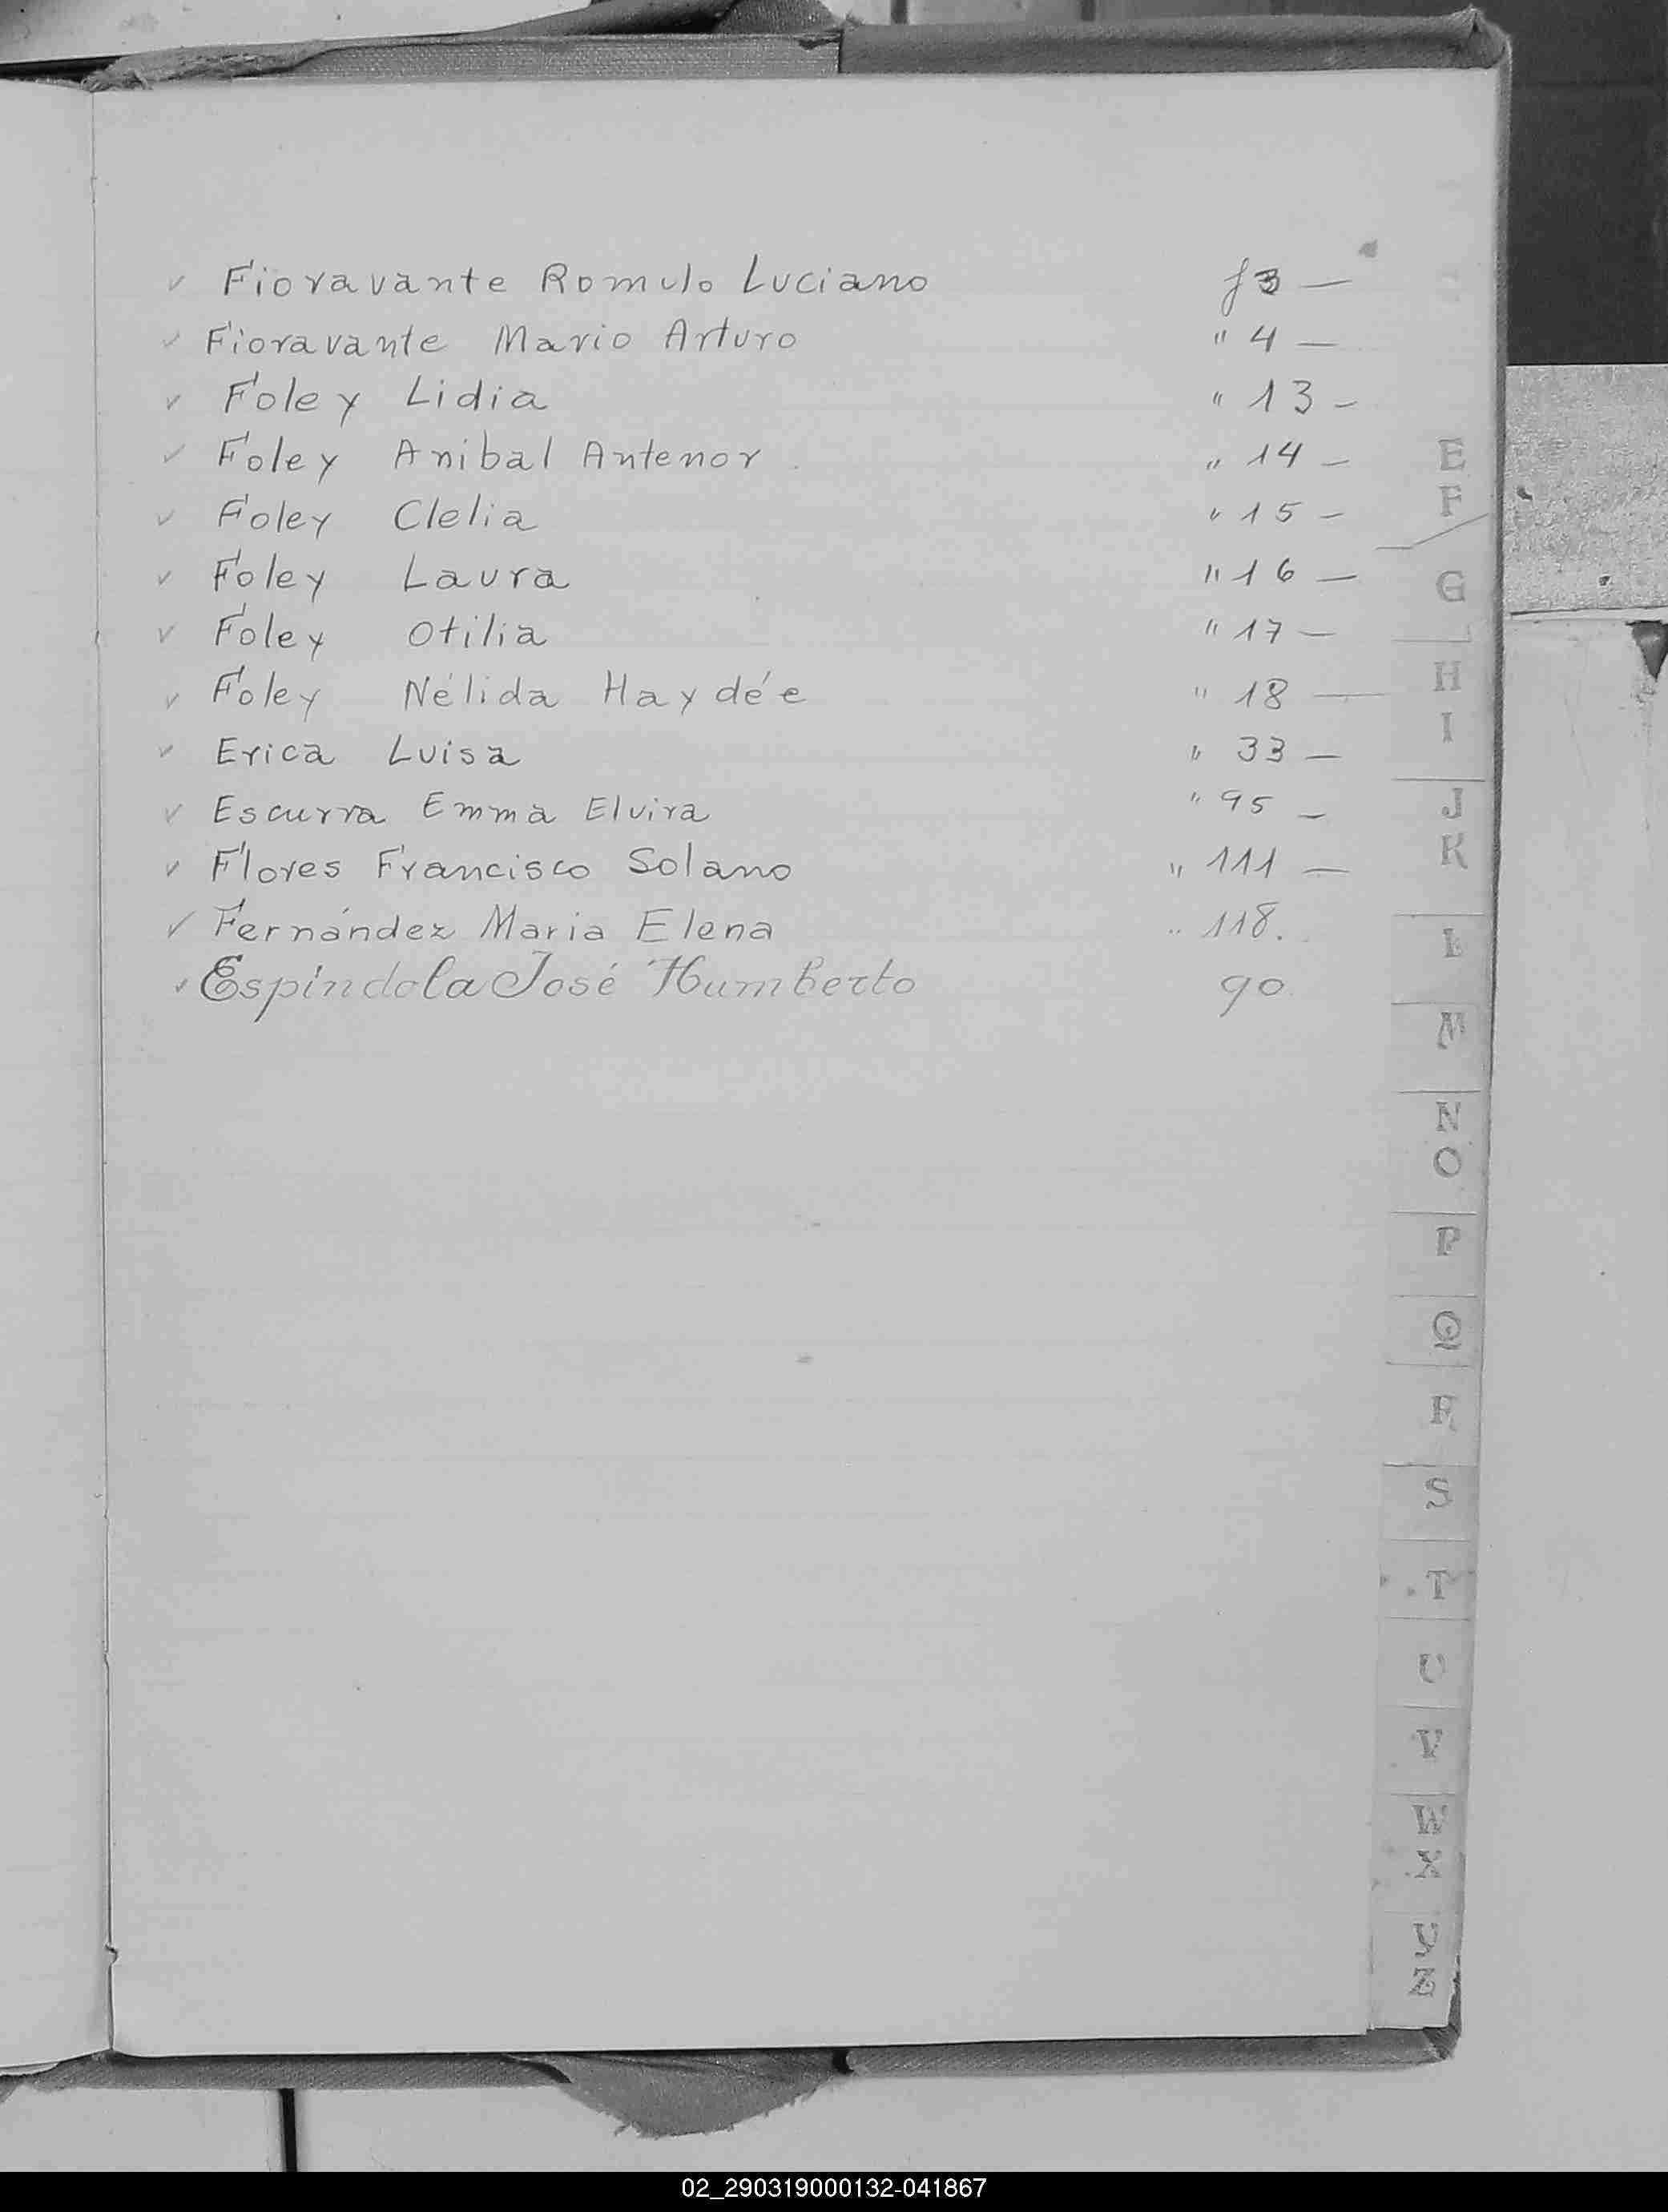 ✓ Fioravante Romulo Luciano f 3 —
✓ Fioravante Mario Arturo " 4 —
✓ Foley Lidia " 13 —
✓ Foley Anibal Antenor " 14 —
✓ Foley Clelia " 15 —
✓ Foley Laura " 16 —
✓ Foley Otilia " 17 —
✓ Foley Nélida Haydée " 18 —
✓ Erica Luisa " 33 —
✓ Escurra Emma Elvira " 95 —
✓ Flores Francisco Solano " 111 —
✓ Fernández Maria Elena " 118.
✓ Espíndola José Humberto 90
E
F
G
H
I
J
K
L
M
N
O
P
Q
R
S
T
U
V
W
X
Y
Z
02_290319000132-041867